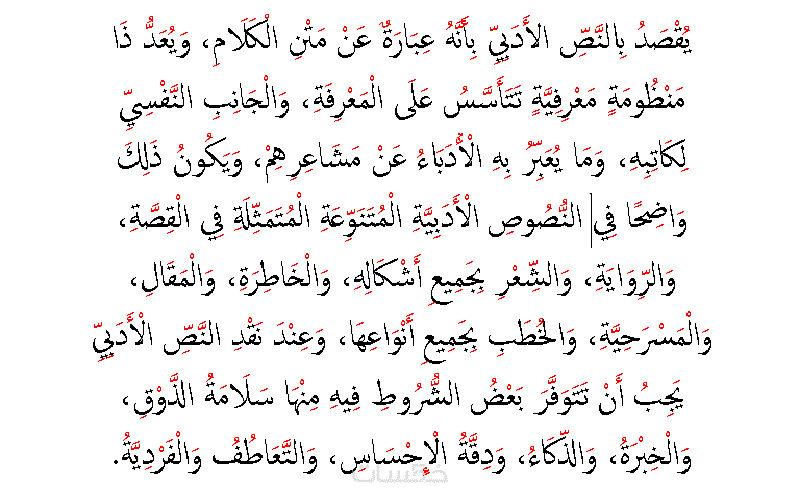 يُقْصَدُ بِالنَّصِّ الأَدَبِيِّ بِأَنَّهُ عِبَارَةٌ عَنْ مَتْنِ الْكَلَامِ، وَيُعَدُّ ذَا
مَنْظُومَةٍ مَعْرِفِيَّةٍ تَتَأَسَّسُ عَلَى الْمَعْرِفَةِ، وَالْجَانِبِ النَّفْسِيِّ
لِكَاتِبِهِ، وَمَا يُعَبِّرُ بِهِ الْأُدَبَاءُ عَنْ مَشَاعِرِهِمْ، وَيَكُونُ ذَلِكَ
وَاضِحًا فِي النُّصُوصِ الْأَدَبِيَّةِ الْمُتَنَوِّعَةِ الْمُتَمَثِّلَةِ فِي الْقِصَّةِ،
وَالرِّوَايَةِ، وَالشِّعْرِ بِجَمِيعِ أَشْكَالِهِ، وَالْخَاطِرَةِ، وَالْمَقَالِ،
وَالْمَسْرَحِيَّةِ، وَالْخُطَبِ بِجَمِيعِ أَنْوَاعِهَا، وَعِنْدَ نَقْدِ النَّصِّ الْأَدَبِيِّ
يَجِبُ أَنْ تَتَوَفَّرَ بَعْضُ الشُّرُوطِ فِيهِ مِنْهَا سَلَامَةُ الذَّوْقِ،
وَالْخِبْرَةُ، وَالذَّكَاءُ، وَدِقَّةُ الْإِحْسَاسِ، وَالتَّعَاطُفُ وَالْفَرْدِيَّةُ.